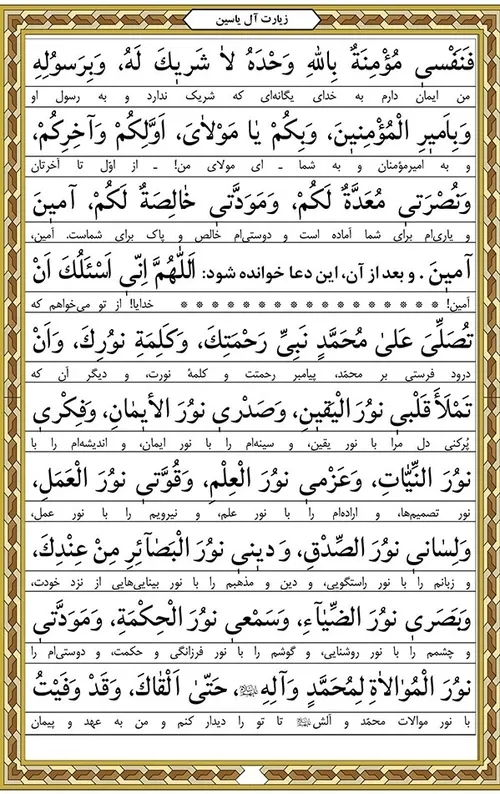 زیارت آل یاسین
فَنَفْسی مُؤْمِنَةٌ بِاللّٰهِ وَحْدَهُ لاٰ شَریكَ لَهُ، وَبِرَسوُلِهِ
من ایمان دارم به خدای یگانه‌ای که شریک ندارد و به رسول او
وَبِاَمیرِ الْمُؤْمِنینَ، وَبِكُمْ یٰا مَوْلاٰیَ، اَوَّلِكُمْ وَآخِرِكُمْ،
و به امیرمؤمنان و به شما ـ ای مولای من! ـ از اوّل تا آخرتان
وَنُصْرَتی مُعَدَّةٌ لَكُمْ، وَمَوَدَّتی خٰالِصَةٌ لَكُمْ، آمینَ
و یاری‌ام برای شما آماده است و دوستی‌ام خالص و پاک برای شماست. آمین،
آمینَ . و بعد از آن، این دعا خوانده شود: اَللّٰهُمَّ اِنّی اَسْئَلُكَ اَنْ
آمین! * * * * * * * * * * * * * * * * خدایا! از تو می‌خواهم که
تُصَلِّیَ عَلیٰ مُحَمَّدٍ نَبِیِّ رَحْمَتِكَ، وَكَلِمَةِ نوُرِكَ، وَاَنْ
درود فرستی بر محمّد، پیامبر رحمتت و کلمهٔ نورت، و دیگر آن که
تَمْلَأَ قَلْبی نوُرَ الْیَقینِ، وَصَدْری نوُرَ الْأیمٰانِ، وَفِكْری
پُرکنی دل مرا با نور یقین، و سینه‌ام را با نور ایمان، و اندیشه‌ام را با
نوُرَ النِّیّٰاتِ، وَعَزْمی نوُرَ الْعِلْمِ، وَقُوَّتی نوُرَ الْعَمَلِ،
نور تصمیم‌ها، و اراده‌ام را با نور علم، و نیرویم را با نور عمل،
وَلِسٰانی نوُرَ الصِّدْقِ، وَ دینی نوُرَ الْبَصٰآئِرِ مِنْ عِنْدِكَ،
و زبانم را با نور راستگویی، و دین و مذهبم را با نور بینایی‌هایی از نزد خودت،
وَبَصَری نوُرَ الضِّیٰآءِ، وَسَمْعی نوُرَ الْحِكْمَةِ، وَمَوَدَّتی
و چشمم را با نور روشنایی، و گوشم را با نور فرزانگی و حکمت، و دوستی‌ام را
نوُرَ الْمُوٰالاٰةِ لِمُحَمَّدٍ وَآلِهِ، حَتّیٰ اَلْقٰاكَ، وَقَدْ وَفَیْتُ
با نور موالات محمّد و آلش تا تو را دیدار کنم و من به عهد و پیمان